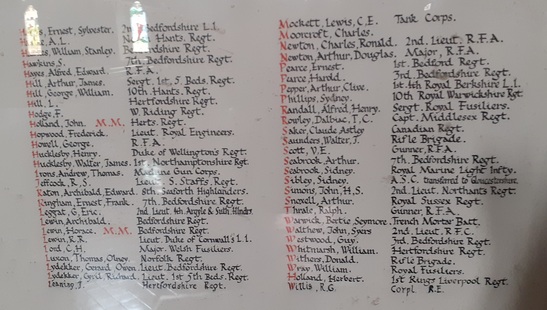 Ernest, Sylvester. 2nd Bedfordshire L.I.
A.L. Hants. Regt.
William, Stanley. Bedfordshire Regt.
Hawkins, S. 7th. Bedfordshire Regt.
Hayes, Alfred, Edward. R.F.A.
Hill, Arthur, James. Sergt. 1st, 5. Beds. Regt.
Hill, George, William. 10th. Hants. Regt.
Hill, L. Hertfordshire Regt.
Hodge, F. W. Riding Regt.
Holland, John. M.M. Herts. Regt.
Hopwood, Frederick. Lieut. Royal Engineers.
Howell, George. R.F.A.
Hucklesby, Henry. Duke of Wellington's Regt.
Hucklesby, Walter, James. 1st. Northamptonshire Rgt.
Irons, Andrew, Thomas. Machine Gun Corps.
Jeffcock, R.S. Lieut. S. Staffs. Regt.
Katon, Archibald, Edward. 8th. Seaforth Highlanders.
Kingham, Ernest, Frank. 7th. Bedfordshire Regt.
Legrat, G, Eric. 2nd. Lieut. 4th. Argyle & Suth. Hindrs
Lewin, Archibald. Bedfordshire Regt.
Lewin, Horace. M.M. Bedfordshire Regt.
Lewin, R.R. Lieut. Duke of Cornwall's L.I.
Lord, C.H. Major. Welsh Fusiliers.
Luxon, Thomas, Olney. Norfolk Regt.
Lydekker, Gerard, Owen. Lieut. Bedfordshire Regt.
Lydekker, Cyril, Richard. Lieut. 1st 5th Beds. Regt.
J. Hertfordshire Regt.
Mockett, Lewis, C.E. Tank Corps.
Moorcroft, Charles.
Newton, Charles, Ronald. 2nd. Lieut. R.F.A.
Newton, Arthur, Douglas. Major, R.F.A.
Pearce, Ernest. 1st. Bedford Regt.
Pearce, Harold. 3rd. Bedfordshire Regt.
Pepper, Arthur, Clive. 1st. 4th Royal Berkshire L.I.
Phillips, Sydney. 10th. Royal Warwickshire Rgt.
Randall, Alfred, Henry. Sergt. Royal Fusiliers.
Rowley, Dalbiac, T.C. Capt. Middlesex Regt.
Saker, Claude, Astley Canadian Regt.
Saunders, Walter, J. Rifle Brigade.
Scott, V.E. Gunner, R.F.A.
Seabrook, Arthur. 7th. Bedfordshire Regt.
Seabrook, Sidney. Royal Marine Light Infty.
Sibley, Sidney. A.S.C. transferred to Gloucestershire
Simons, John, H,S. 2nd. Lieut. Northants Regt.
Snoxell, Arthur. Royal Sussex Regt.
Thrale, Ralph. Gunner, R.F.A.
Warwick, Bertie Seymore. Trench Mortar Batt.
Walthew, John, Syers 2nd. Lieut. R.F.C.
Westwood, Guy. 3rd. Bedfordshire Regt.
Whitmash, William. Hertfordshire Regt.
Withers, Donald. Rifle Brigade.
Wray, William. Royal Fusiliers.
Holland, Herbert. 1st Kings Liverpool Regt.
Willis, R.G. Corpl. R.E.